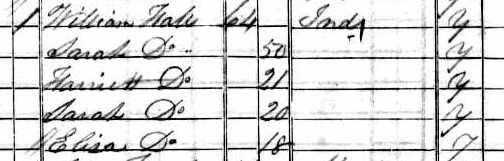 1 William Hale 64 Ind Y
Sarah Do 50 Y
Harriett Do 21 Y
Sarah Do 20 Y
Eliza Do 18 Y